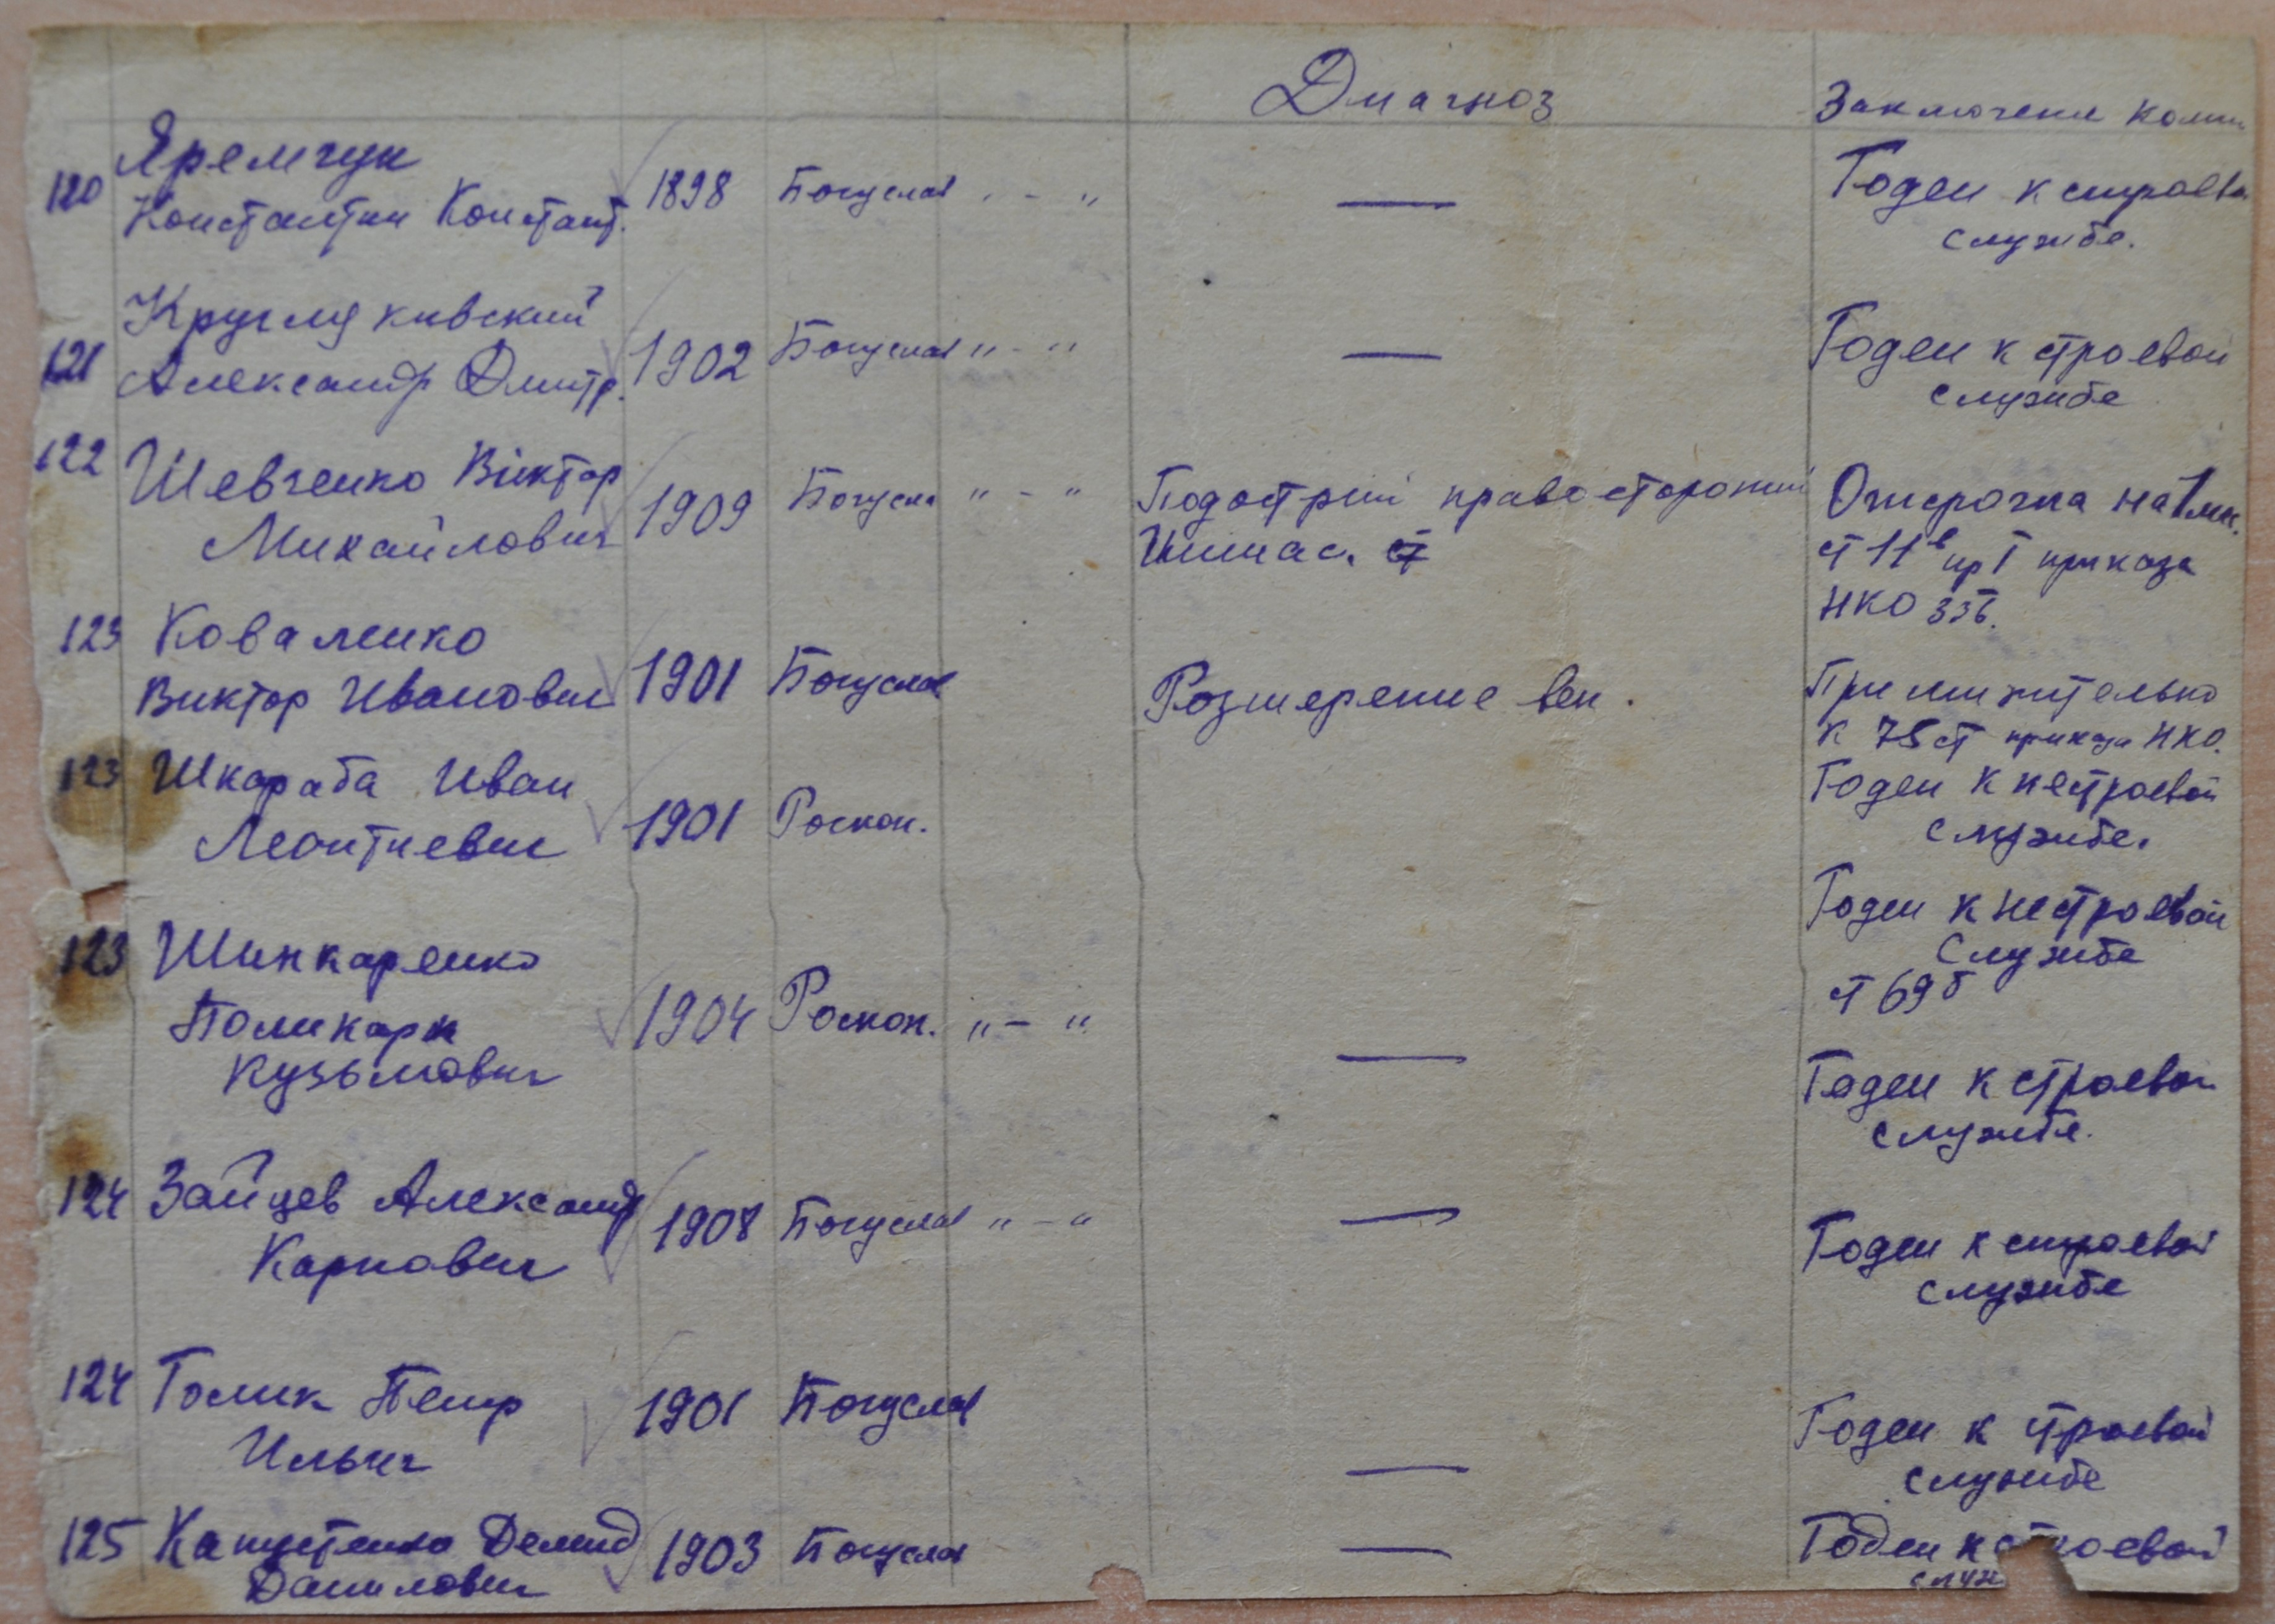 Диагноз
Заключение комис
120 Яремчук
Константин Констант. 1898 Богуслав " - "
—
Годен к строево
службе.
Кругляковский
121 Александр Дмитр. 1902 Богуслав " - "
—
Годен к строевой
службе
122 Шевченко Віктор
Михайлович 1909 Богусла " - "
Подострий правосторонний
Ишиас.
Отсрочка на 1 мес.
ст 11в гр I приказа
НКО 336.
123 Коваленко
Виктор Иванович 1901 Богуслав
Розширение вен.
Применительно
к 75 ст приказа НКО.
Годен к нестроевой
службе.
123 Шкараба Иван
Леонтиевич 1901 Роскоп.
Годен к нестроевой
службе
ст 69 б
123 Шинкаренко
Поликарп
Кузьмович 1904 Роскоп. " - "
—
Годен к строевой
службе.
124 Зайцев Александр
Карпович 1908 Богуслав " - "
—
Годен к строевой
службе
124 Голик Петр
Ильич 1901 Богуслав
—
Годен к строевой
службе
125 Капустенко Демид
Данилович 1903 Богуслав
—
Годен к строевой
служ